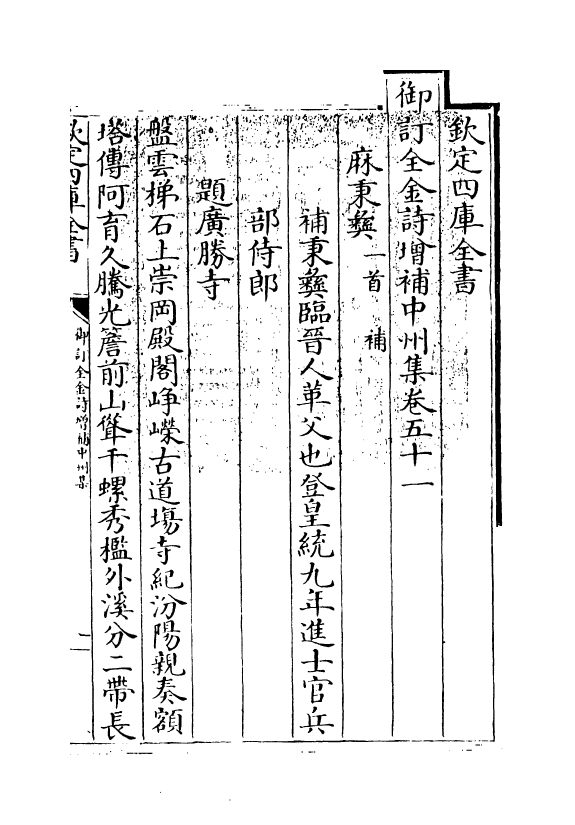 欽定四庫全書
御訂全金詩增補中州集卷五十一
麻秉彜一首 補
補秉彜臨晉人革父也登皇統九年進士官兵
部侍郎
題廣勝寺
盤雲梯石上崇岡殿閣崢嶸古道塲寺紀汾陽親奏額
塔傳阿育久騰光簷前山聳千螺秀檻外溪分二帶長
欽定四庫全書
御訂全金詩增補中州集